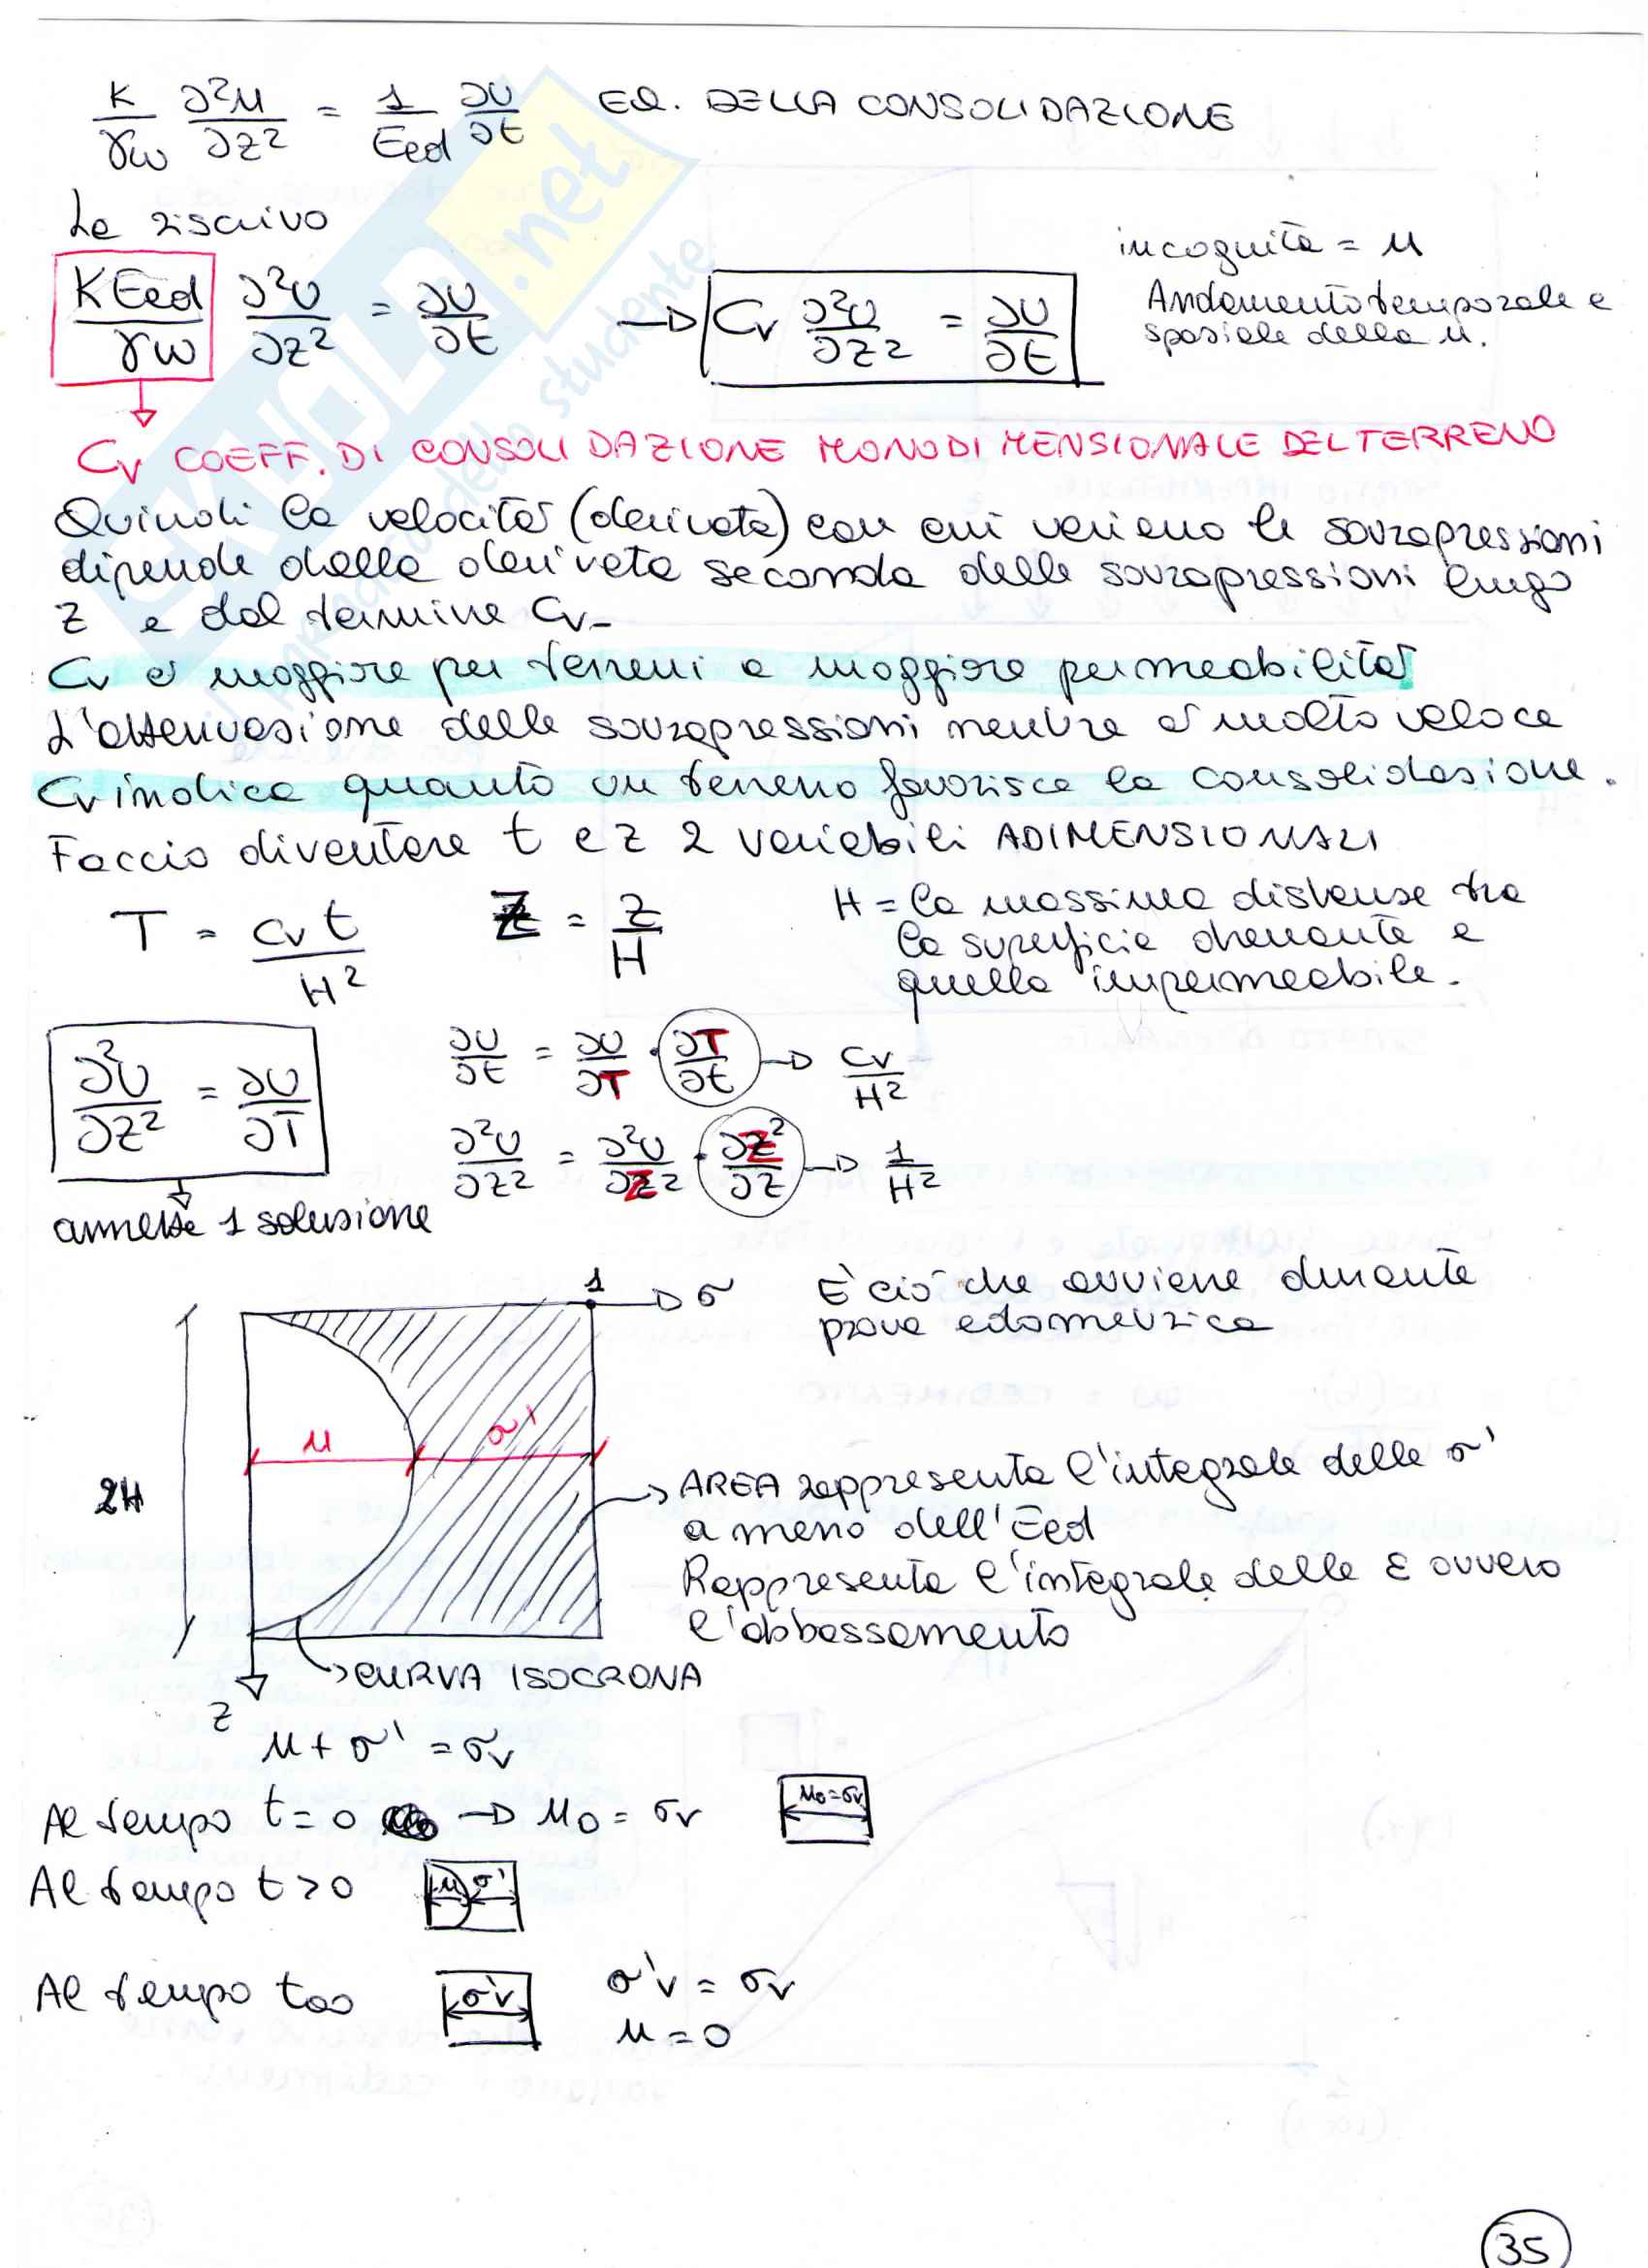 K/γw ∂²u/∂z² = 1/Eed ∂u/∂t EQ. DELLA CONSOLIDAZIONE
La riscrivo
KEed/γw ∂²u/∂z² = ∂u/∂t → Cv ∂²u/∂z² = ∂u/∂t
incognita = u
Andamento temporale e
spaziale della u.
Cv COEFF. DI CONSOLIDAZIONE MONODIMENSIONALE DEL TERRENO
Quindi la velocità (derivata) con cui variano le sovrapressioni
dipende dalla derivata seconda delle sovrapressioni lungo
z e dal termine Cv-
Cv è maggiore per terreni a maggiore permeabilità
L'attenuazione delle sovrapressioni neutre è molto veloce
Cv indica quanto un terreno favorisce la consolidazione.
Faccio diventare t e z 2 variabili ADIMENSIONALI
T = cv t/H² Z = z/H
H = la massima distanza tra
la superficie drenante e
quella impermeabile.
∂²u/∂Z² = ∂u/∂T
∂u/∂t = ∂u/∂T · ∂T/∂t → Cv/H²
∂²u/∂z² = ∂²u/∂Z² · ∂Z²/∂z → 1/H²
ammette 1 soluzione
1 → σ
È ciò che avviene durante
prova edometrica
u σ'
2H
AREA rappresenta l'integrale delle σ'
a meno dell'Eed
Rappresenta l'integrale delle ε ovvero
l'abbassamento
CURVA ISOCRONA
z
u + σ' = σv
Al tempo t = 0 → u0 = σv u0=σv
Al tempo t > 0 u σ'
Al tempo t∞ σ'v σ'v = σv
u = 0
35
SKUOLA.net
il paradiso dello studente